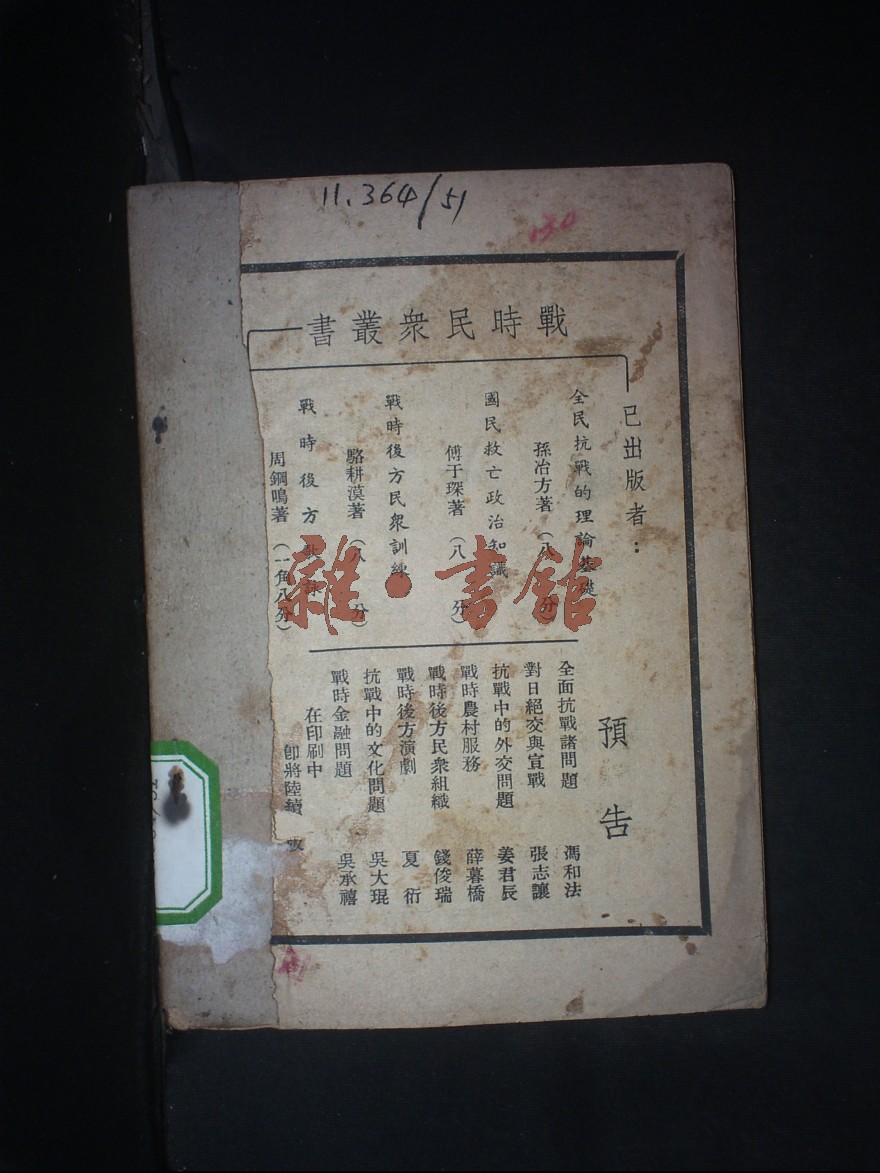 11.364/51
130
戰時民衆叢書
已出版者：
全民抗戰的理論基礎
孫冶方著（八分）
國民救亡政治知識
傅于琛著（八分）
戰時後方民衆訓練
駱耕漠著（八分）
戰時後方
周鋼鳴著（一角八分）
預告
全面抗戰諸問題 馮和法
對日絕交與宣戰 張志讓
抗戰中的外交問題 姜君辰
戰時農村服務 薛暮橋
戰時後方民衆組織 錢俊瑞
戰時後方演劇 夏衍
抗戰中的文化問題 吳大琨
戰時金融問題 吳承禧
在印刷中
卽將陸續 版
雜·書館